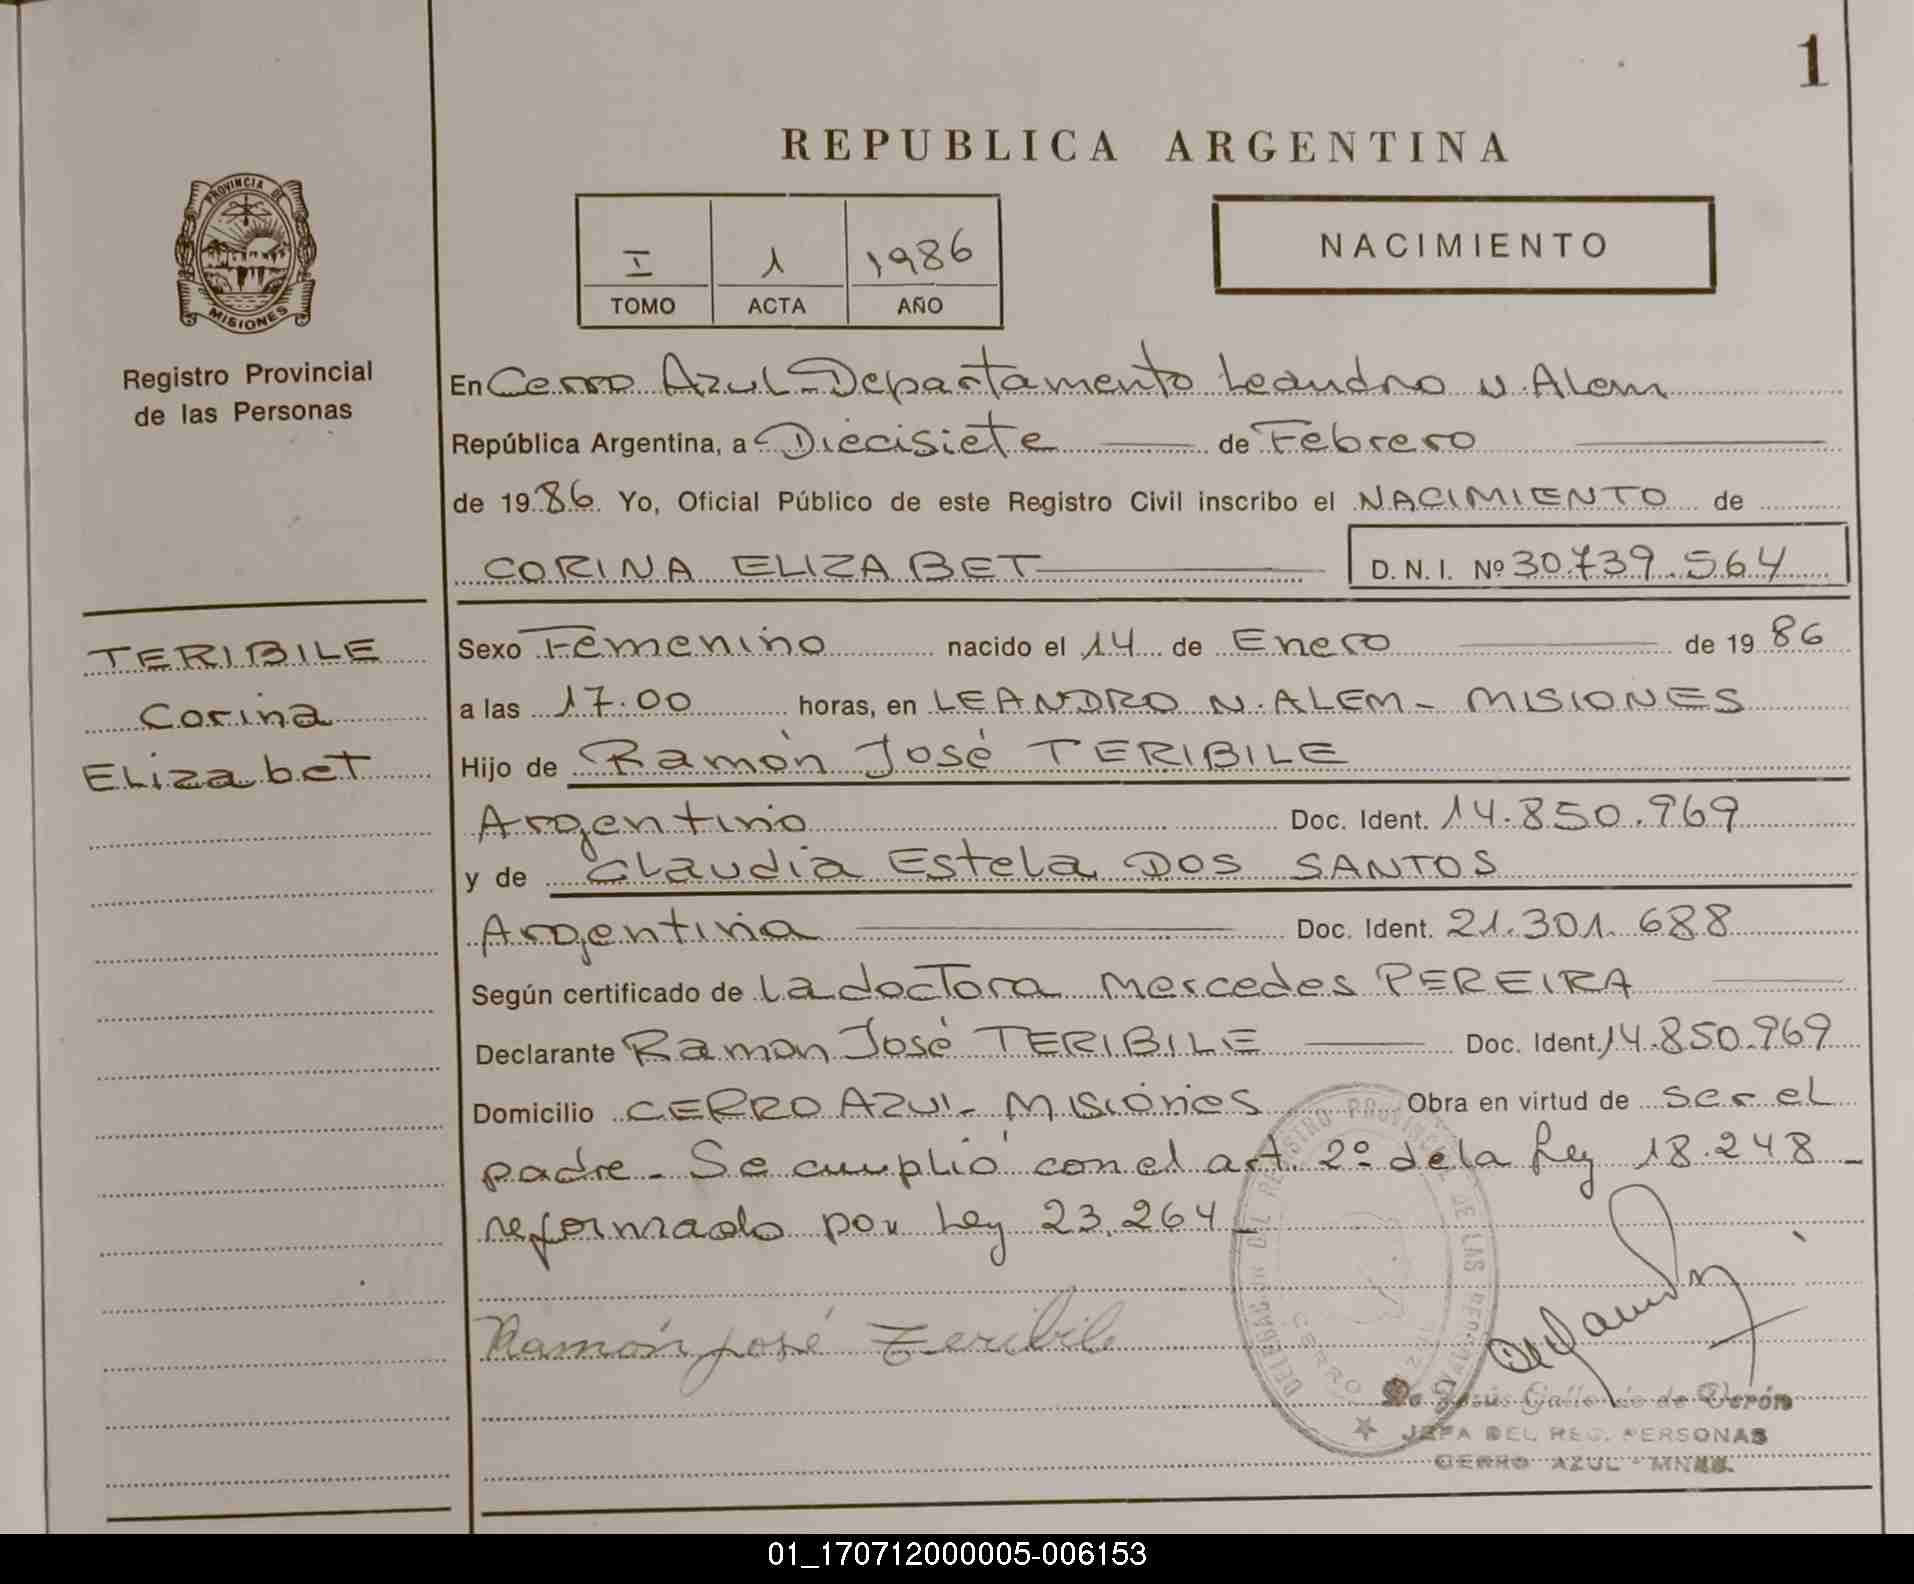 1
REPUBLICA ARGENTINA
PROVINCIA DE
MISIONES
Registro Provincial
de las Personas
I 1 1986
TOMO ACTA AÑO
NACIMIENTO
En Cerro Azul - Departamento Leandro N. Alem
República Argentina, a Diecisiete de Febrero
de 1986 Yo, Oficial Público de este Registro Civil inscribo el NACIMIENTO de
CORINA ELIZABET D.N.I. Nº 30.739.564
TERIBILE
Corina
Elizabet
Sexo Femenino nacido el 14 de Enero de 1986
a las 17.00 horas, en LEANDRO N. ALEM - MISIONES
Hijo de Ramón José TERIBILE
Argentino Doc. Ident. 14.850.969
y de Claudia Estela DOS SANTOS
Argentina Doc. Ident. 21.301.688
Según certificado de la doctora Mercedes PEREIRA
Declarante Ramon José TERIBILE Doc. Ident. 14.850.969
Domicilio CERRO AZUL - MISIONES Obra en virtud de ser el
padre - Se cumplió con el art. 2º de la Ley 18.248 -
reformado por Ley 23.264 -
Ramón José Teribile
DEL REGISTRO PROVINCIAL DE LAS PERSONAS
CERRO AZUL
de Verón
JEFA DEL REG. PERSONAS
CERRO AZUL - MNES.
01_170712000005-006153